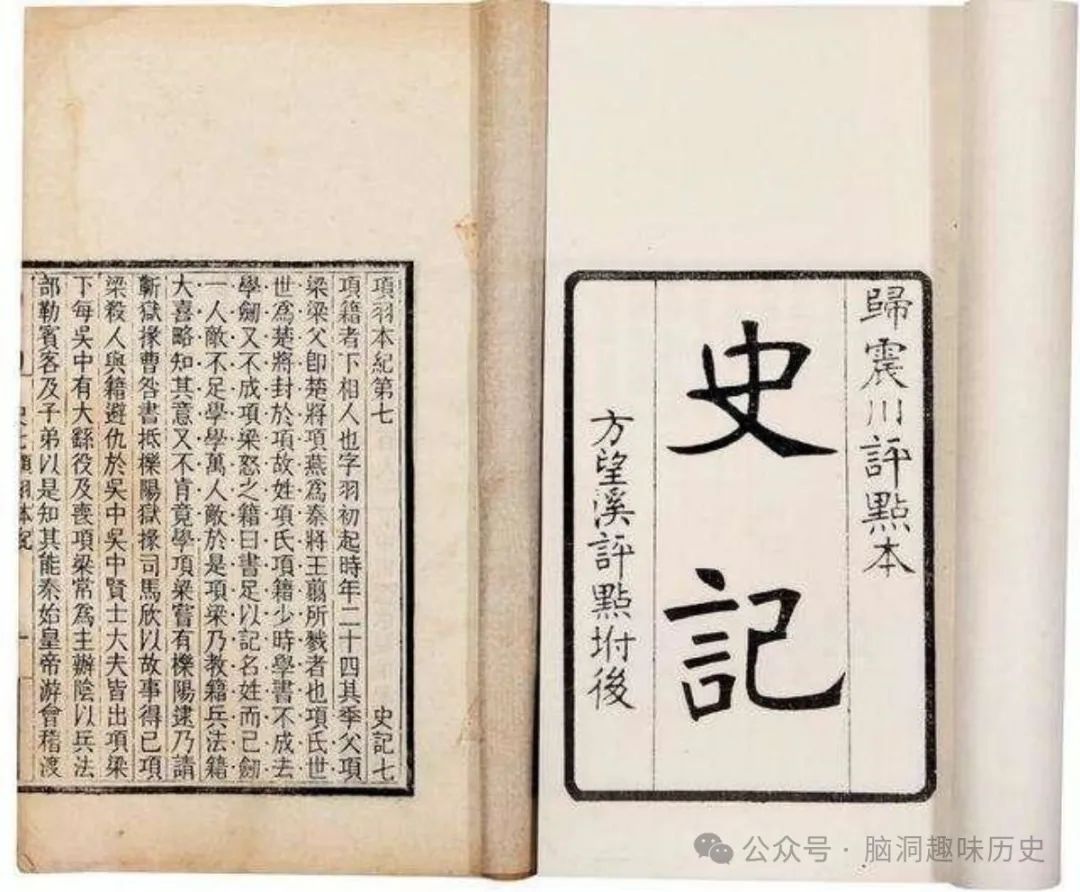 歸震川評點本
史記
方望溪評點坿後
項羽本紀第七 史記七
項籍者下相人也字羽初起時年二十四其季父項
梁梁父卽楚將項燕爲秦將王翦所戮者也項氏世
世爲楚將封於項故姓項氏項籍少時學書不成去
學劒又不成項梁怒之籍曰書足以記名姓而已劒
一人敵不足學學萬人敵於是項梁乃教籍兵法籍
大喜略知其意又不肯竟學項梁嘗有櫟陽逮乃請
蘄獄掾曹咎書抵櫟陽獄掾司馬欣以故事得已項
梁殺人與籍避仇於吳中吳中賢士大夫皆出項梁
下每吳中有大繇役及喪項梁常爲主辦陰以兵法
部勒賓客及子弟以是知其能秦始皇帝游會稽渡
史七項羽本紀
一
公众号·脑洞趣味历史